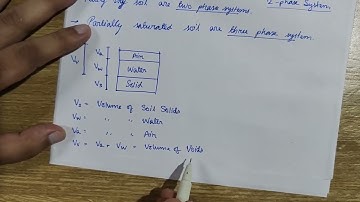 dry soil are two phase systems. 2-phase System.
→ Partially saturated soil are three phase system.
Va Air
Vv Vw Water
Vs Solid
Vs = Volume of Soil Solids
Vw = " " Water
Va = " " Air
Vv = Va + Vw = Volume of Voids